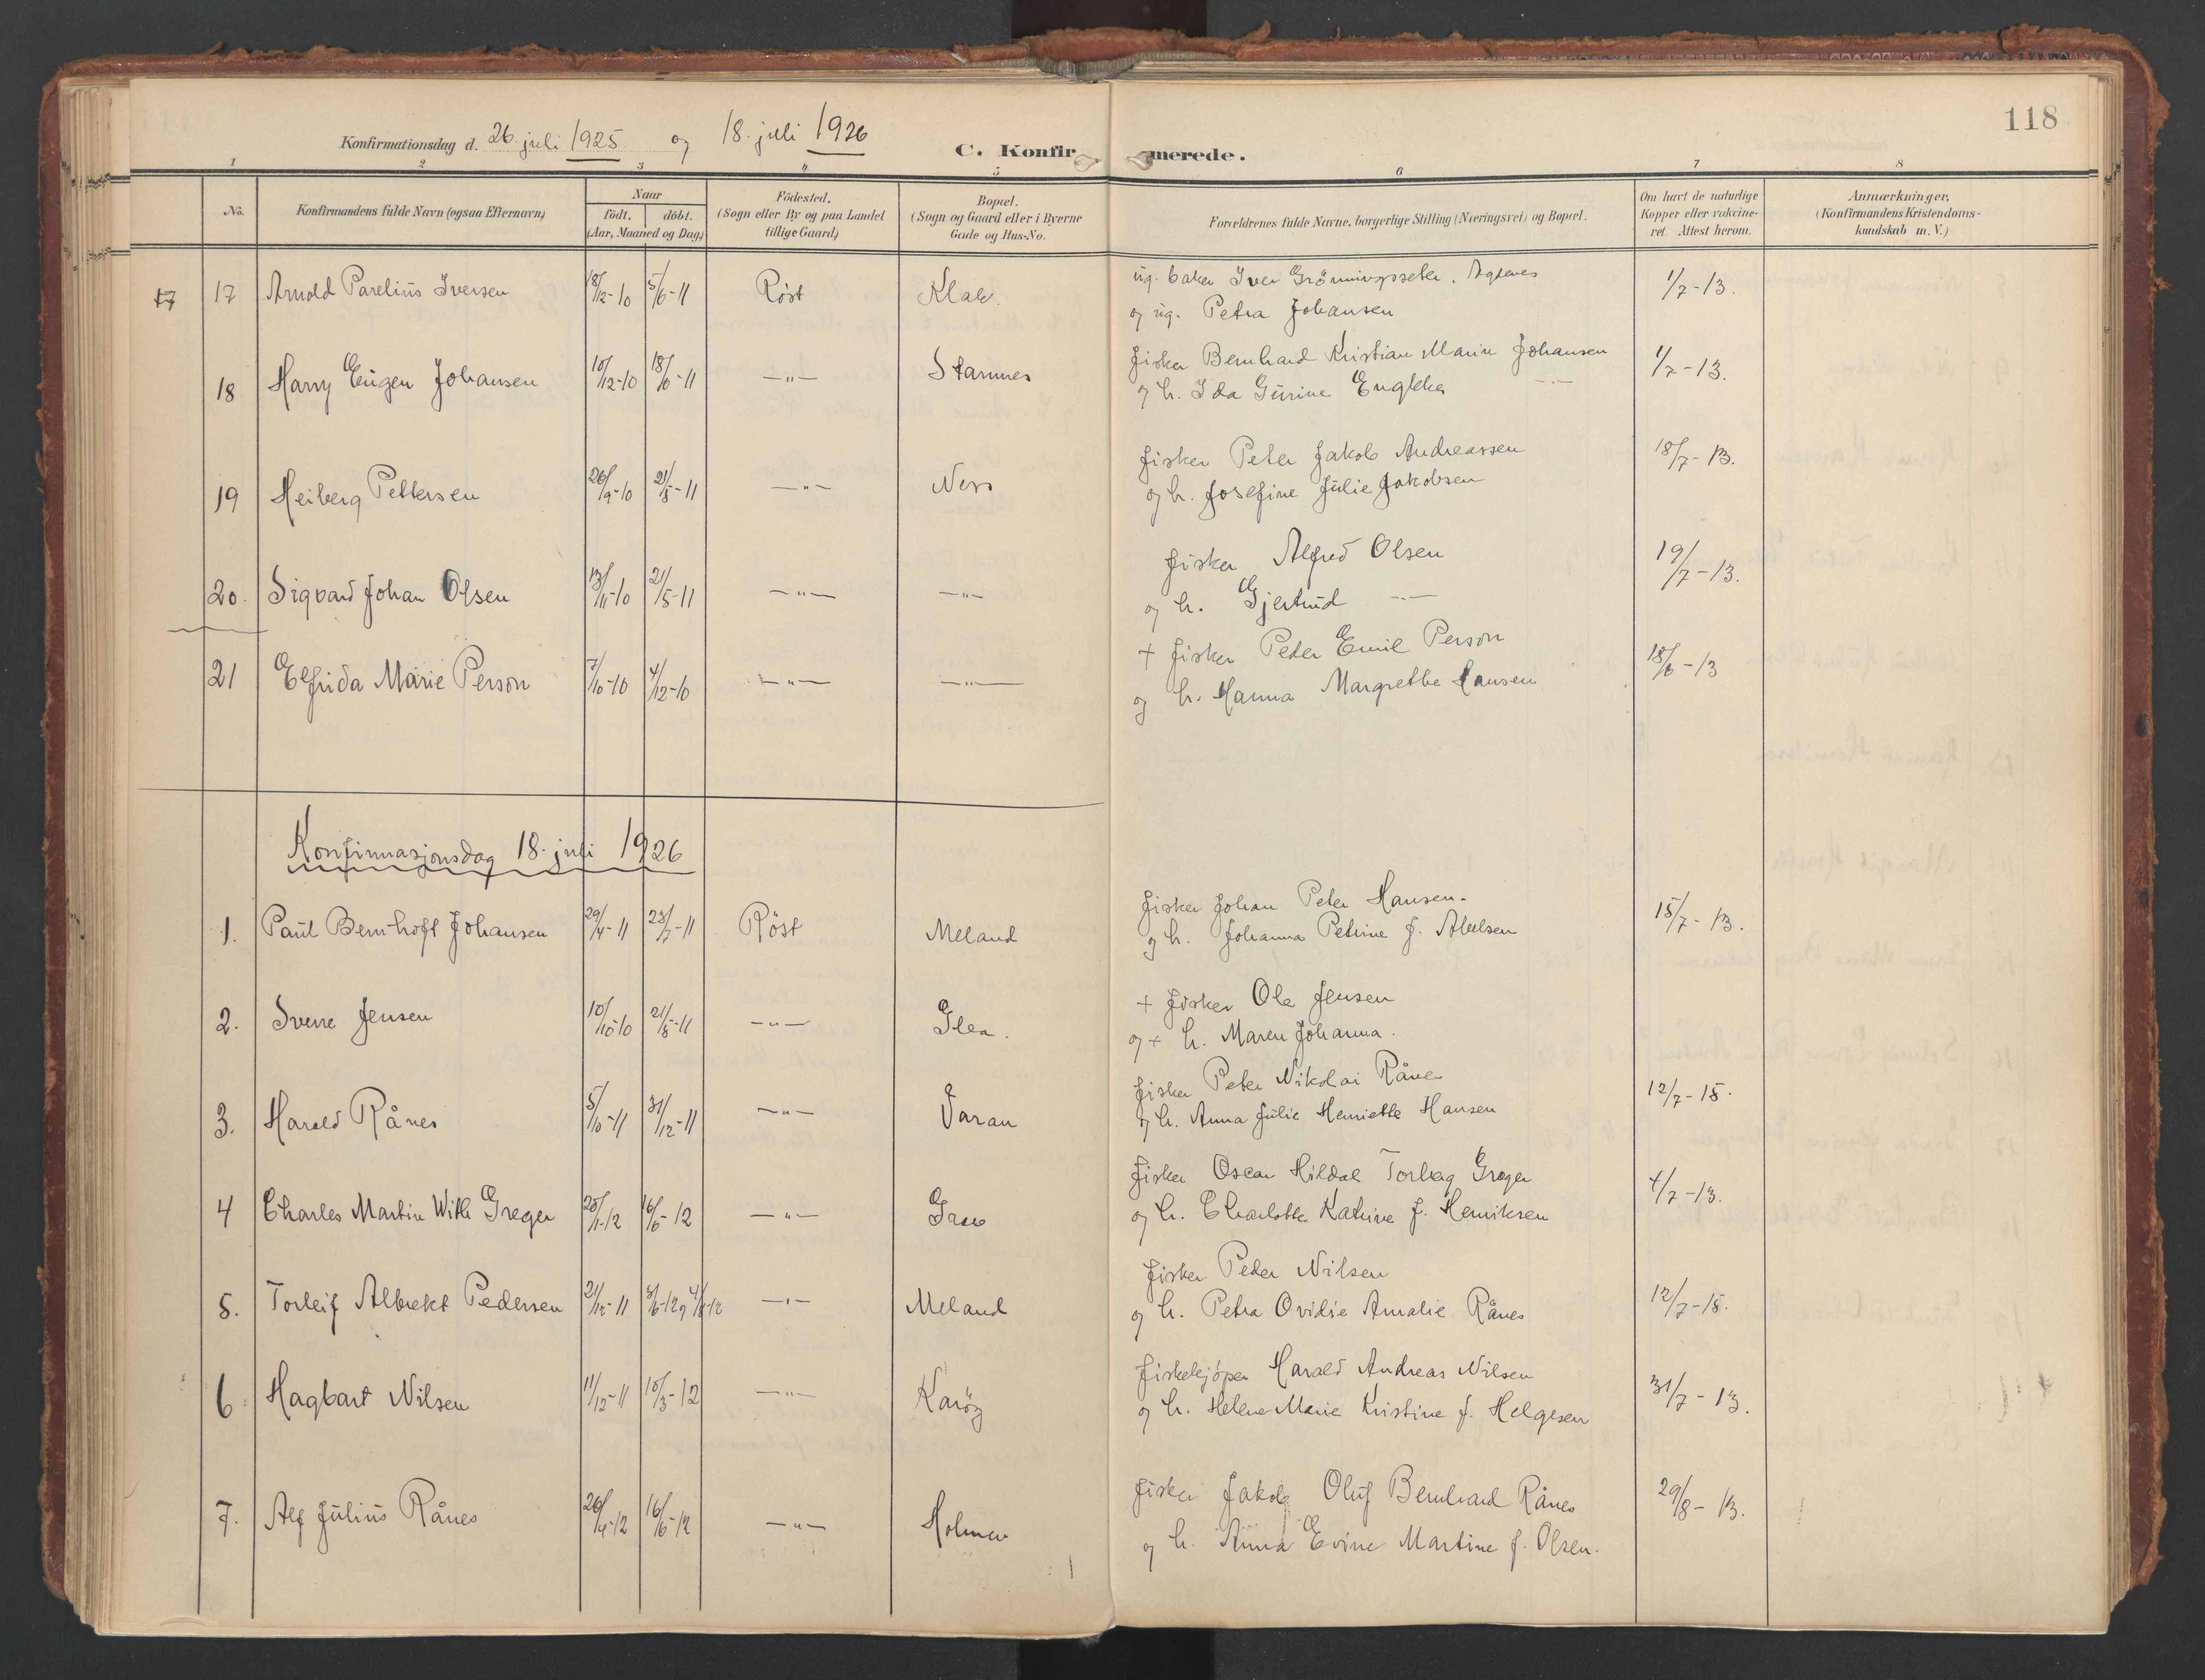 118
Konfirmationsdag d. 26. juli 1925 og 18. juli 1926
C. Konfirmerede.
1 2 3 4 5 6 7 8
No. Konfirmandens fulde Navn (ogsaa Efternavn) Naar födt. döbt. (Aar, Maaned og Dag) Födested. (Sogn eller By og paa Landet tillige Gaard) Bopæl. (Sogn og Gaard eller i Byerne Gade og Hus-No. Forældrenes fulde Navne, borgerlige Stilling (Næringsvei) og Bopæl. Om havt de naturlige Kopper eller vakcineret. Attest herom. Anmærkninger. (Konfirmandens Kristendomskundskab m. V.)
17 17 Arnold Parelius Iversen 18/12-10 5/6-11 Röst Klak. ug. baker Iver Grönningsseter.
og ug. Petra Johansen 1/7-13.
18 Harry Eugen Johansen 10/12-10 18/6-11 —"— Stavnes fisker Bernhard Kristian Marin Johansen
og h. Ida Gurine —"— 1/7-13.
19 Heiberg Pettersen 26/9-10 21/5-11 —"— Ness fisker Peter Jakob Andreassen
og h. Josefine Julie Jakobsen 18/7-13.
20. Sigvard Johan Olsen 13/11-10 21/5-11 —"— —"— fisker Alfred Olsen
og h. Gjertrud —"— 19/7-13.
21 Elfrida Marie Person 7/10-10 4/12-10 —"— —"— + fisker Peder Emil Person
og h. Hanna Margrethe Hansen 18/6-13
Konfirmasjonsdag 18. juli 1926
1. Paul Bernhoft Johansen 29/4-11 23/7-11 Röst Meland fisker Johan Peter Hansen.
og h. Johanna Petrine f. Abelsen 15/7-13.
2. Sverre Jensen 10/10-10 21/5-11 —"— Glea. + fisker Ole Jensen
og + h. Maren Johanna.
3. Harald Rånes 5/10-11 31/12-11 —"— fisker Peter Nikolai Rånes
og h. Anna Julie Henriette Hansen 12/7-15.
4 Charles Martin With Greger 20/1-12 16/6-12 —"— fisker Oscar Hildal Greger
og h. Charlotte Katrine f. Henriksen 4/7-13.
5. Torleif Albrekt Pedersen 21/12-11 —"— Meland fisker Peder Nilsen
og h. Petra Ovidie Amalie Rånes 12/7-15.
6 Hagbart Nilsen 11/12-11 10/3-12 —"— Karöy fiskekjöper Harald Andreas Nilsen
og h. Helene Marie Kristine f. Helgesen 31/7-13.
7. Alf Julius Rånes 26/4-12 16/6-12 —"— Holmen fisker Jakob Oluf Bernhard Rånes
og h. Anna Evine Martine f. Olsen. 29/8-13.